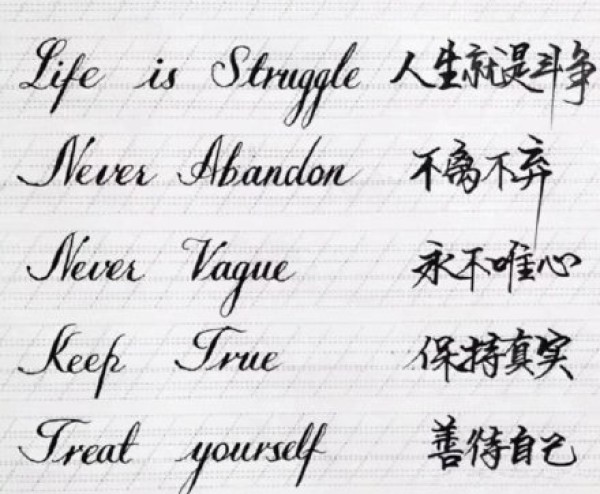 Life is Struggle 人生就是斗争
Never Abandon 不离不弃
Never Vague 永不唯心
Keep True 保持真实
Treat yourself 善待自己